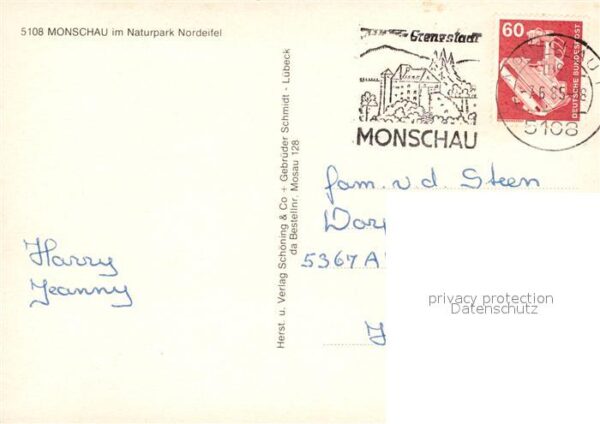 5108 MONSCHAU im Naturpark Nordeifel
Grenzstadt
MONSCHAU
60
DEUTSCHE BUNDESPOST
5108
Herst. u. Verlag Schöning & Co + Gebrüder Schmidt - Lübeck
da Bestellnr. Mosau 128
fam. v. d. Steen
5367 A
Harry
Jeanny
privacy protection
Datenschutz